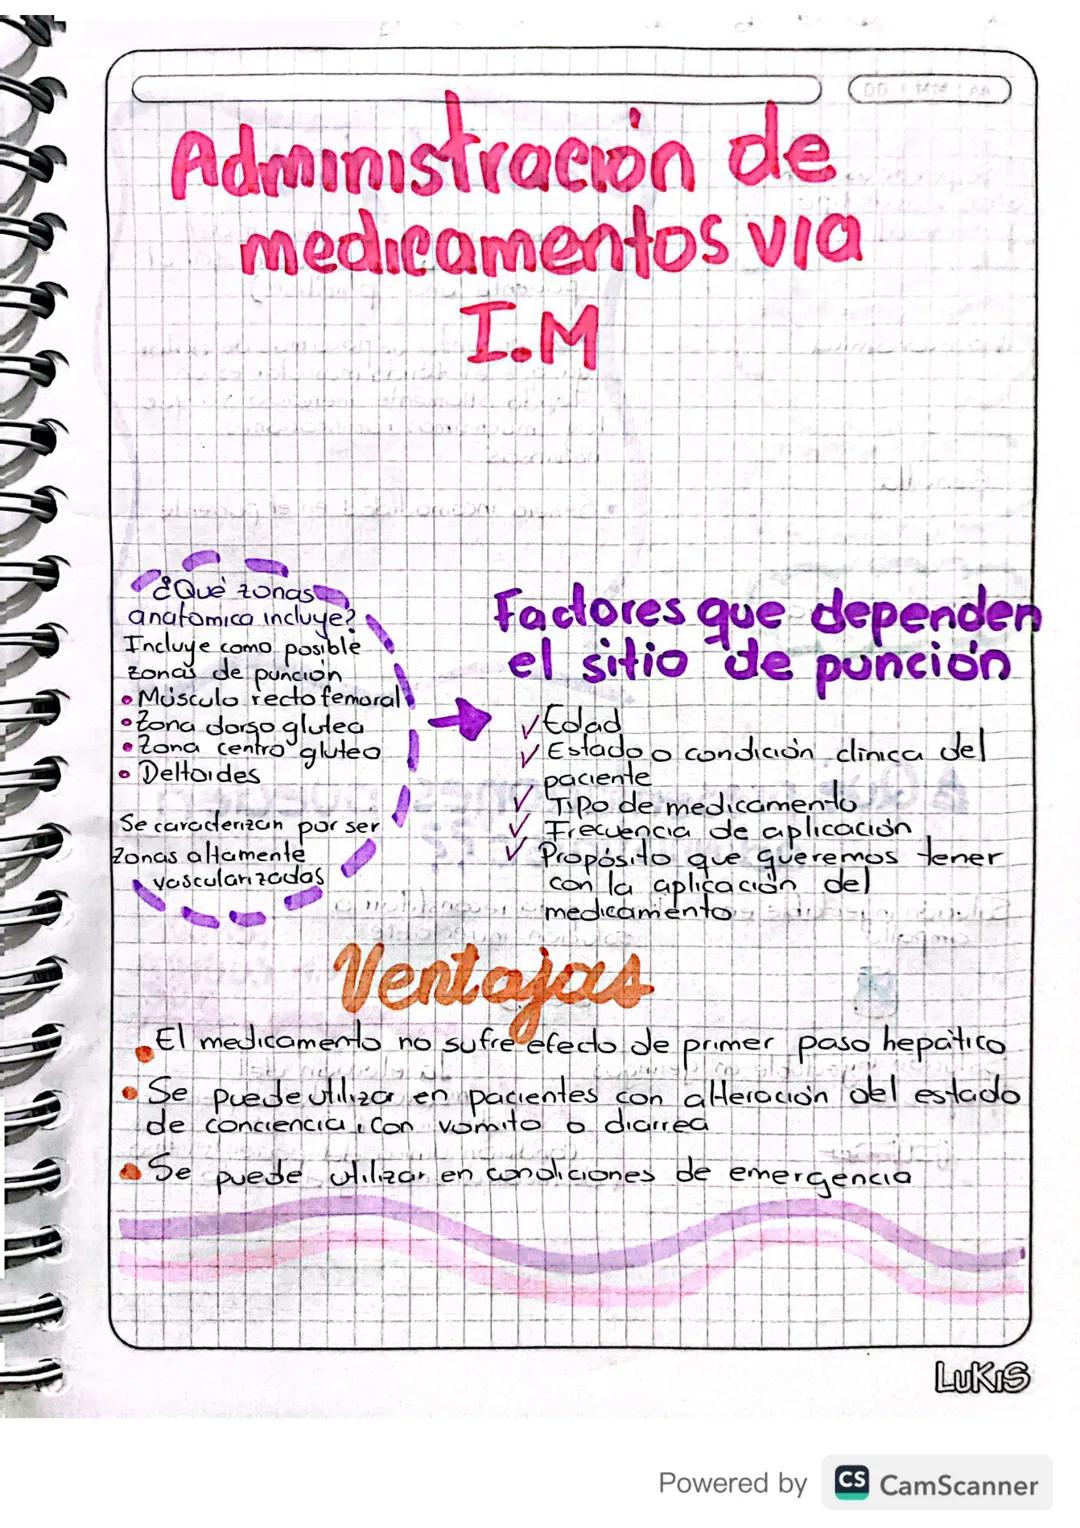 Administración de
medicamentos via
I.M
¿Qué zonas
anatomica incluye?
Incluye como posible
zonas de punción
• Músculo recto femoral
• Zona dorso glutea
• Zona centro gluteo
• Deltoides
Se caracterizan por ser
zonas altamente
vascularizadas
Factores que dependen
el sitio de punción
✓ Edad
✓ Estado o condición clinica del
paciente
✓ Tipo de medicamento
✓ Frecuencia de aplicación
✓ Propósito que queremos tener
con la aplicación del
medicamento
Ventajas
• El medicamento no sufre efecto de primer paso hepático
• Se puede utilizar en pacientes con alteración del estado
de conciencia, con vomito o diarrea
• Se puede utilizar en condiciones de emergencia
LUKIS
Powered by CS CamScanner